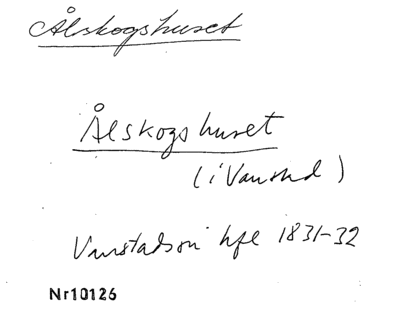 Ålskogshuset
Ålskogshuset
(i Vanstad)
hfl 1831-32
Nr10126